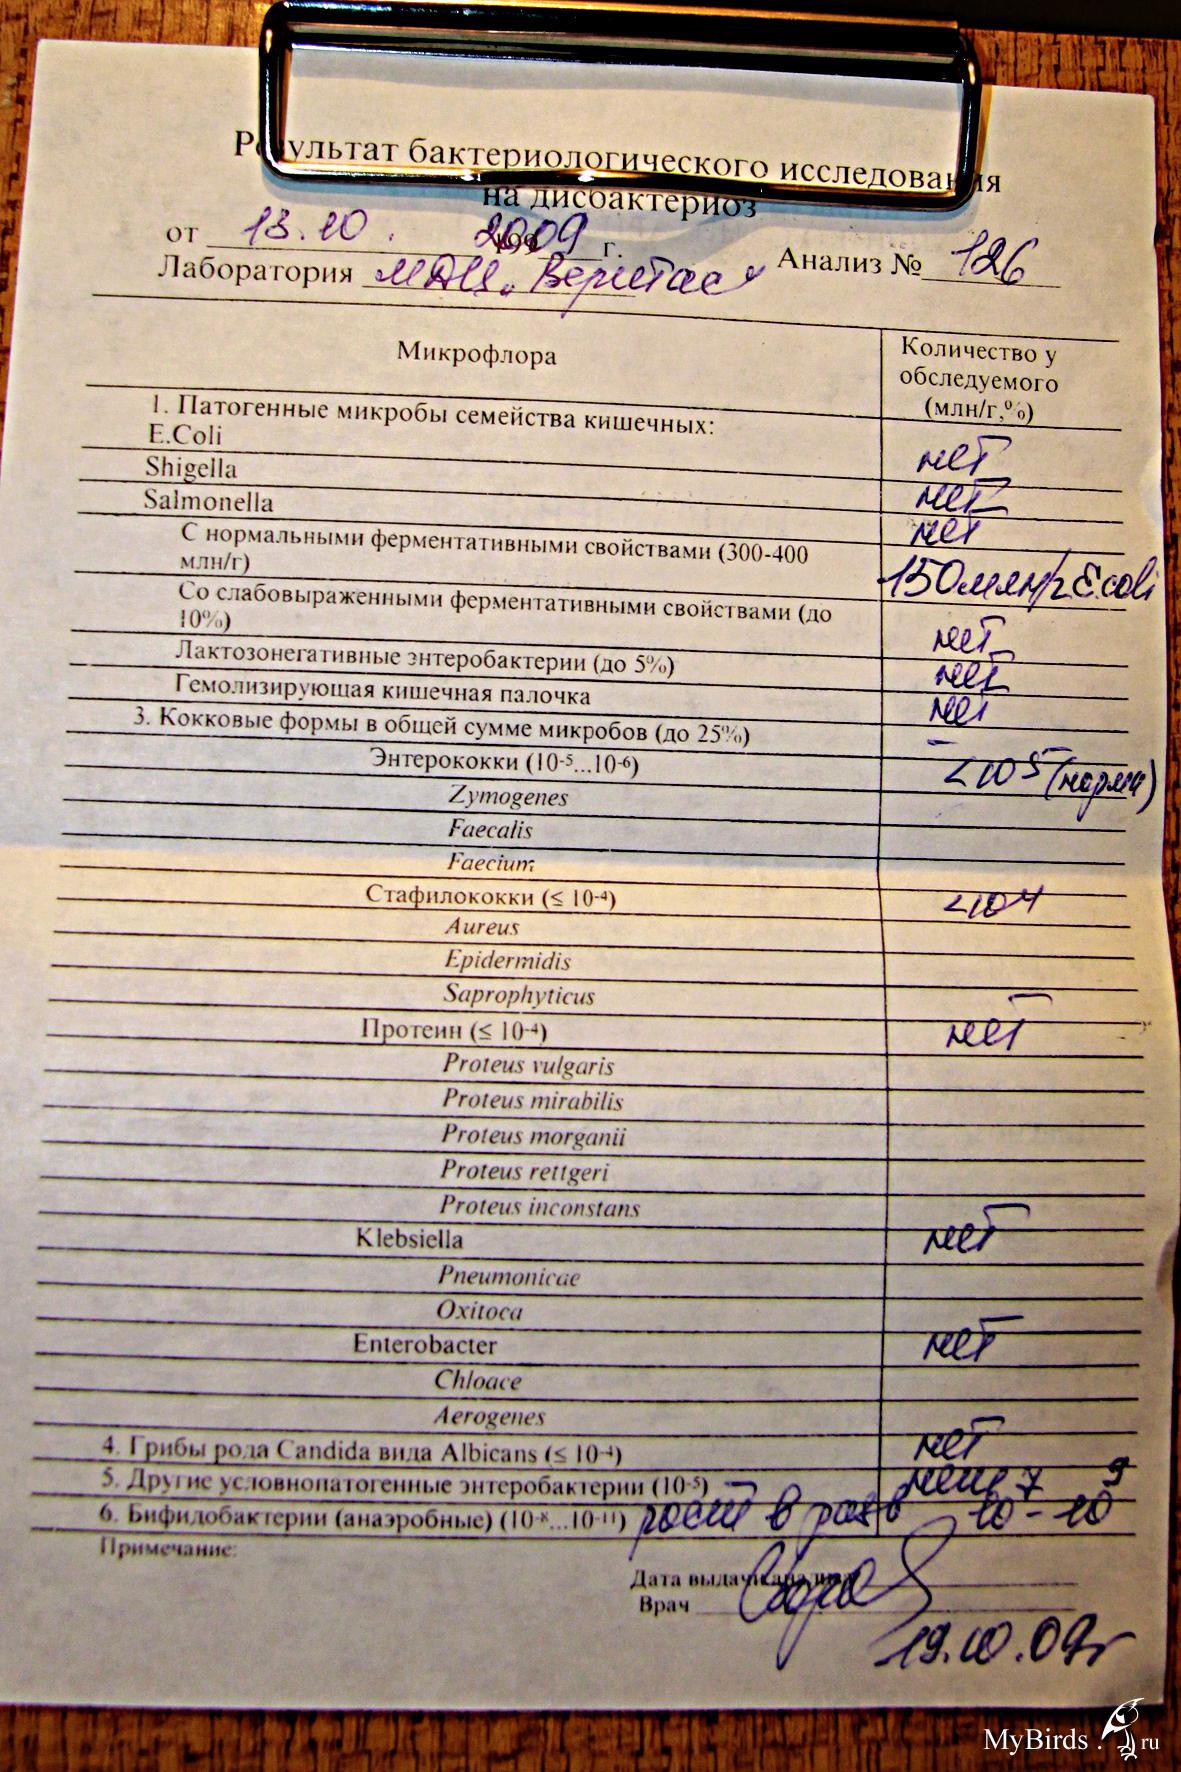 Результат бактериологического исследования
на дисбактериоз
от 13.10. 2009 г.
Анализ № 126
Лаборатория МДЦ "Веритас"
Микрофлора
Количество у обследуемого (млн/г,%)
1. Патогенные микробы семейства кишечных:
E.Coli нет
Shigella нет
Salmonella нет
С нормальными ферментативными свойствами (300-400
млн/г) 150 млн/г E.coli
Со слабовыраженными ферментативными свойствами (до
10%) нет
Лактозонегативные энтеробактерии (до 5%) нет
Гемолизирующая кишечная палочка нет
3. Кокковые формы в общей сумме микробов (до 25%) –
Энтерококки (10-5...10-6) <10 5 (норма)
Zymogenes
Faecalis
Faecium
Стафилококки (≤ 10-4) <10 4
Aureus
Epidermidis
Saprophyticus
Протеин (≤ 10-4) нет
Proteus vulgaris
Proteus mirabilis
Proteus morganii
Proteus rettgeri
Proteus inconstans
Klebsiella нет
Pneumonicae
Oxitoca
Enterobacter нет
Chloace
Aerogenes
4. Грибы рода Candida вида Albicans (≤ 10-4) нет
5. Другие условнопатогенные энтеробактерии (10-5) нет
6. Бифидобактерии (анаэробные) (10-8...10-11) рост в разв 10 7 - 10 9
Примечание:
Дата выдачи
Врач
19.10.09г
MyBirds.ru